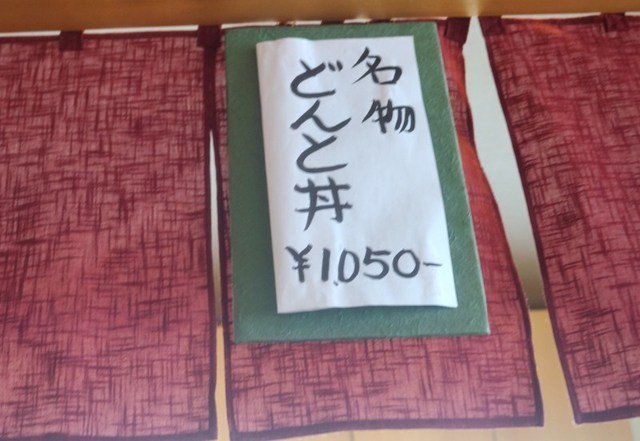 名物
どんと丼
¥1,050-